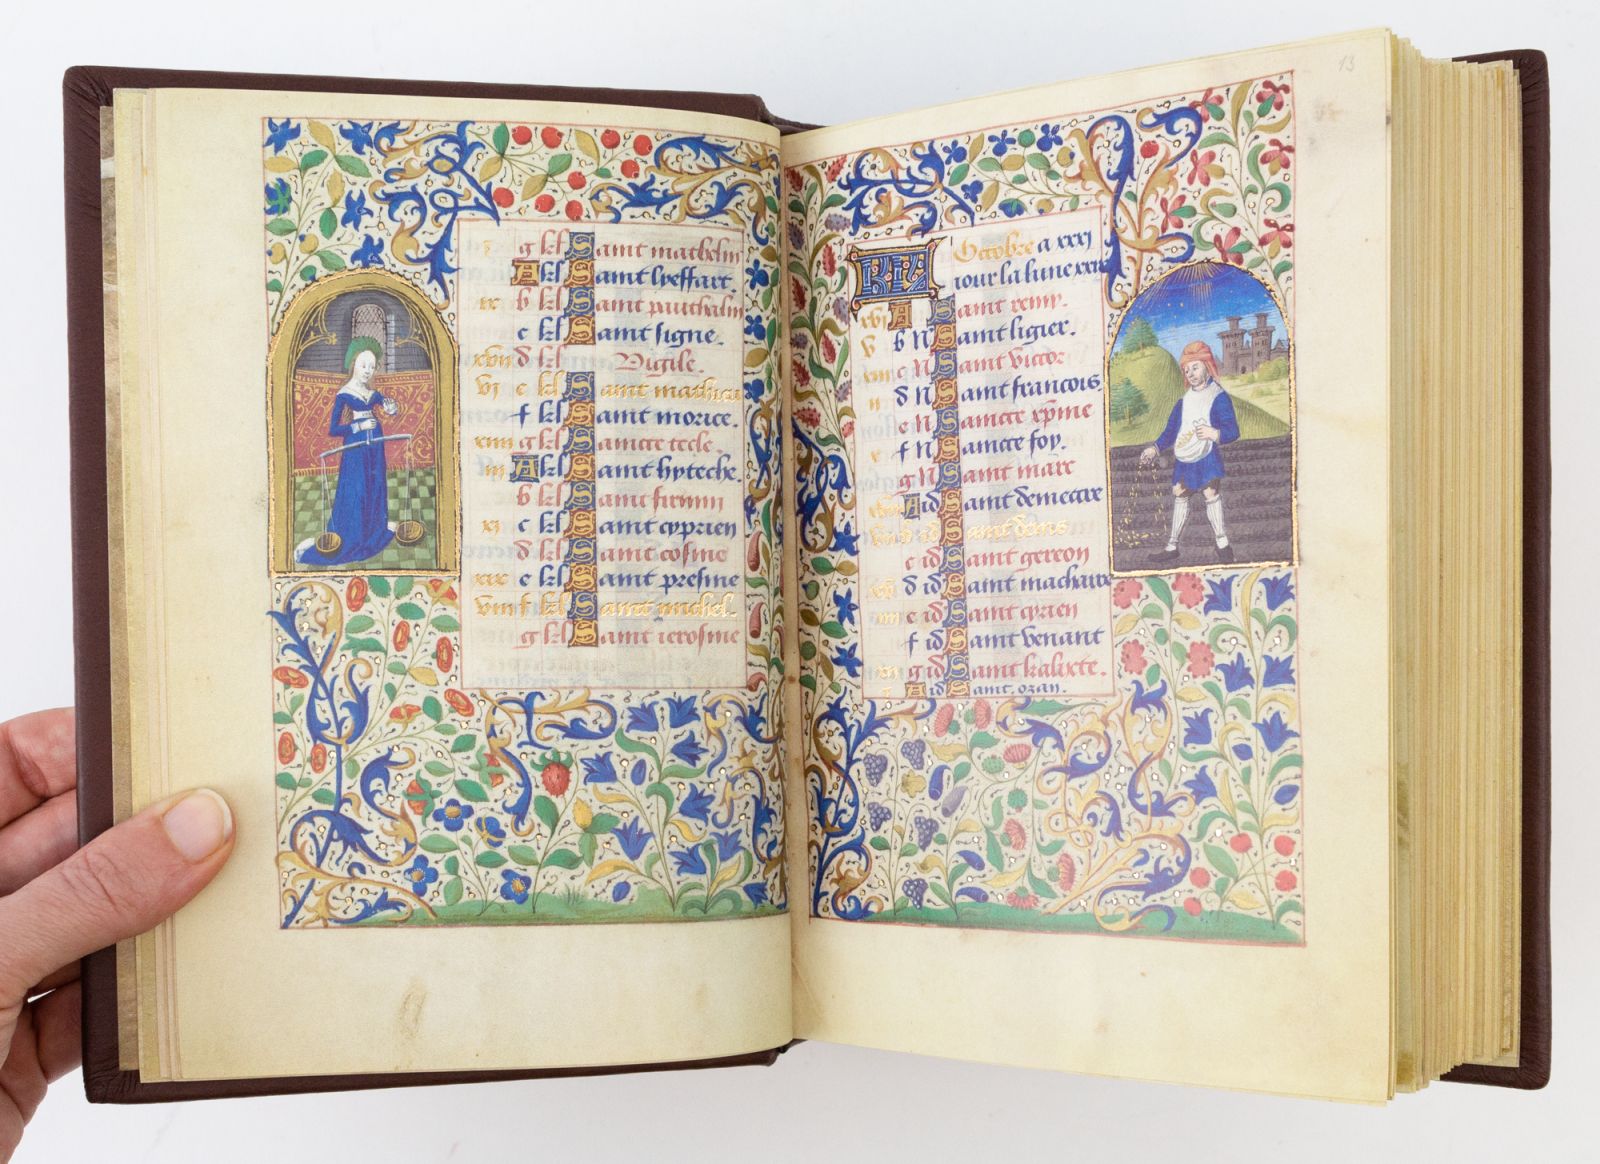 g kl Saint mathelin
A kl Saint lyeffart.
ix b kl Saint panthalin
c kl Saint signe.
xvii d kl Vigile.
vi e kl Saint mathieu
f kl Saint morice.
xiiii g kl Saincte tecle.
iii A kl Saint hyteche.
b kl Saint firmin
xi c kl Saint cyprien
d kl Saint cosme
xix e kl Saint presme
viii f kl Saint michel.
g kl Saint ierosme
13
KL Octobre a xxxi
iour la lune xxx
xvi A Saint remy.
v b N Saint ligier.
xiii c N Saint victor
ii d N Saint francois
e N Saincte xpine
x f N Saincte foy.
g N Saint marc
A id Saint demettre
b id Saint denis
c id Saint gereon
d id Saint machaire
e id Saint cyrien
f id Saint venant
g id Saint kalixte.
A id Saint. ozan.